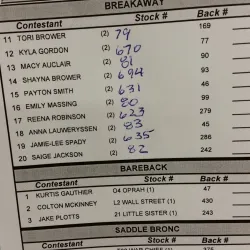 BREAKAWAY
Contestant Stock # Back #
11 TORI BROWER (2) 79 169
12 KYLA GORDON (2) 670 77
13 MACY AUCLAIR (2) 81 90
14 SHAYNA BROWER (2) 694 93
15 PAYTON SMITH (2) 631 46
16 EMILY MASSING (2) 80 99
17 REENA ROBINSON (2) 623 279
18 ANNA LAUWERYSSEN (2) 83 45
19 JAMIE-LEE SPADY (2) 635 288
20 SAIGE JACKSON (2) 82 242
BAREBACK
Contestant Stock # Back #
1 KURTIS GAUTHIER O4 OPRAH (1) 47
2 COLTON MCKINNEY L2 WALL STREET (1) 430
3 JAKE PLOTTS 21 LITTLE SISTER (1) 243
SADDLE BRONC
Contestant Stock # Back #